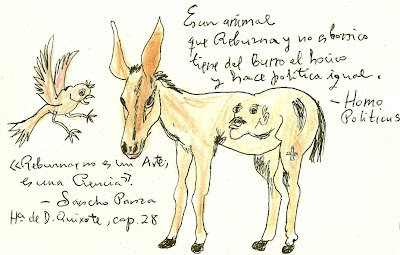 Es un animal
que Reburna y no es borrico
tiene del burro el hocico
y hace política igual.
– Homo
Politicus
«Reburnar, no es un Arte,
es una Ciencia».
– Sancho Panza
Hª de D. Quixote, cap. 28